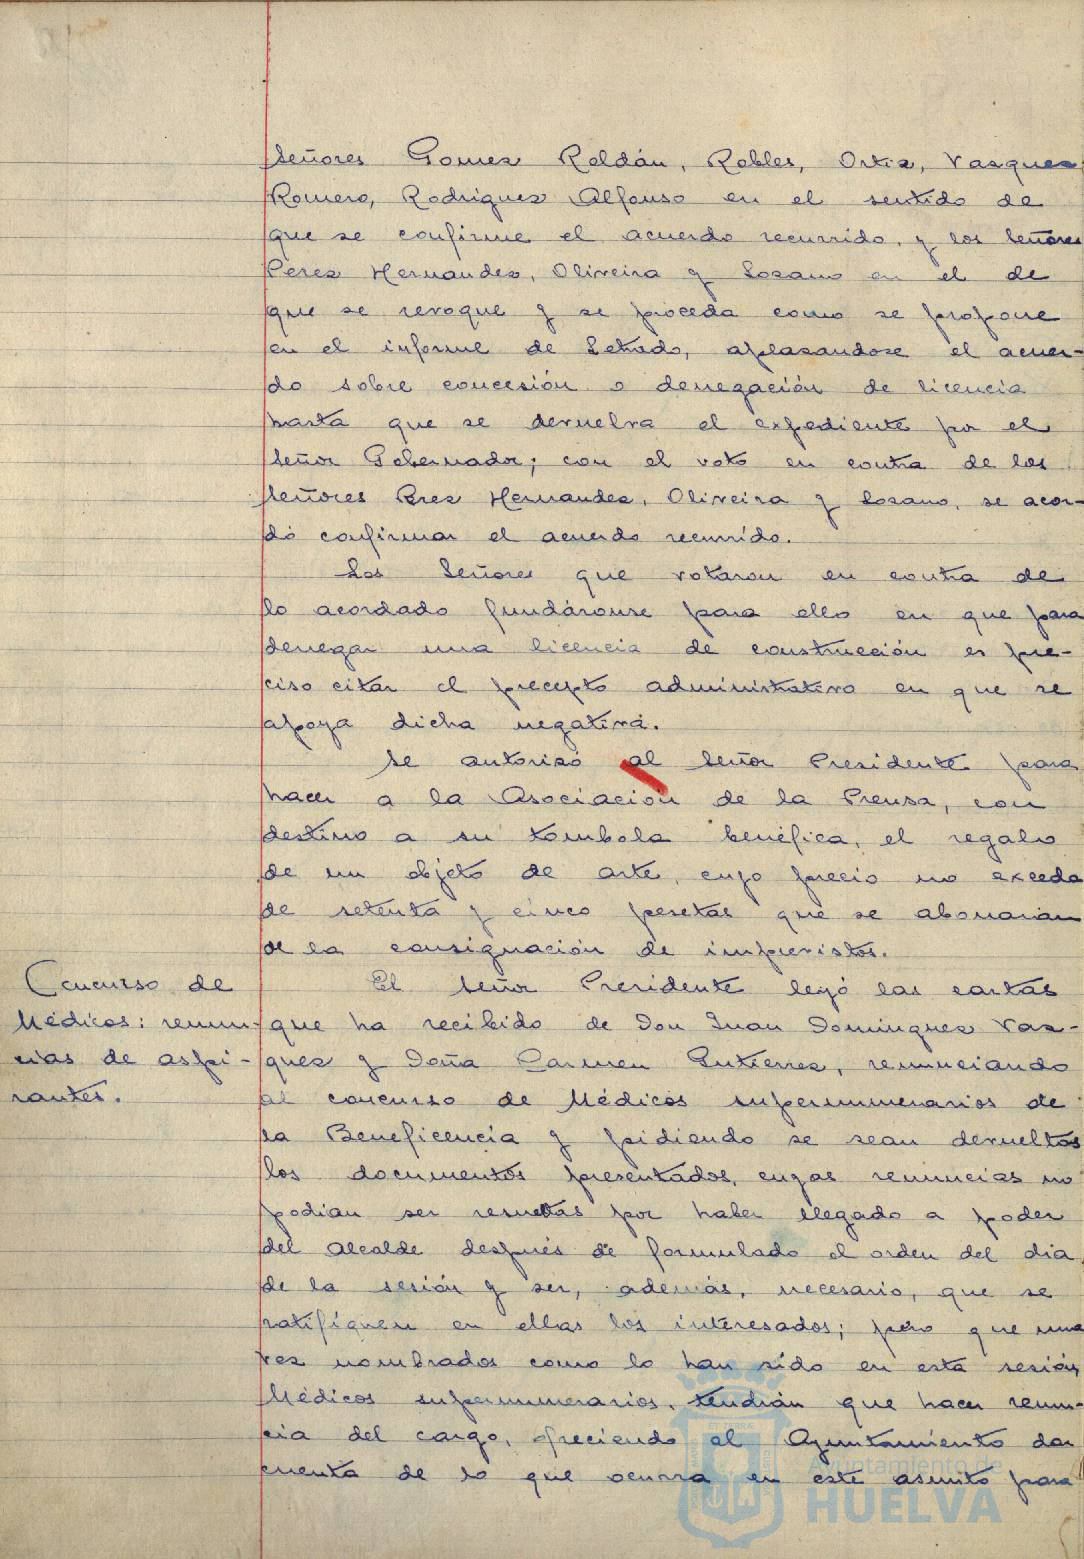 Señores Gomez Roldán, Robles, Ortiz, Vazquez
Romero, Rodriguez Alfonso en el sentido de
que se confirme el acuerdo recurrido, y los Señores
Perez Hernandez, Oliveira y Lozano en el de
que se revoque y se proceda como se propone
en el informe de Letrado, aplazandose el acuer-
do sobre concesión o denegación de licencia
hasta que se devuelva el expediente por el
Señor Gobernador; con el voto en contra de los
Señores Perez Hernandez, Oliveira y Lozano, se acor-
dó confirmar el acuerdo recurrido.
Los Señores que votaron en contra de
lo acordado fundáronse para ello en que para
denegar una licencia de construcción es pre-
ciso citar el precepto administrativo en que se
apoya dicha negativa.
Se autorizó al Señor Presidente para
hacer a la Asociación de la Prensa, con
destino a su tombola benéfica, el regalo
de un objeto de arte, cuyo precio no exceda
de setenta y cinco pesetas que se abonarian
de la consignación de imprevistos.
Concurso de
Médicos: renun-
cias de aspi-
rantes.
El Señor Presidente leyó las cartas
que ha recibido de Don Juan Dominguez Vaz-
quez y Doña Carmen Gutierrez, renunciando
al concurso de Médicos supernumerarios de
la Beneficencia y pidiendo se sean devueltos
los documentos presentados, cuyas renuncias no
podian ser resueltas por haber llegado a poder
del Alcalde después de formulado el orden del dia
de la sesión y ser, además, necesario, que se
ratifiquen en ellas los interesados; pero que una
vez nombrados como lo han sido en esta sesión
Médicos supernumerarios, tendrán que hacer renun-
cia del cargo, ofreciendo al Ayuntamiento dar
cuenta de lo que ocurra en este asunto para
Ayuntamiento de
HUELVA